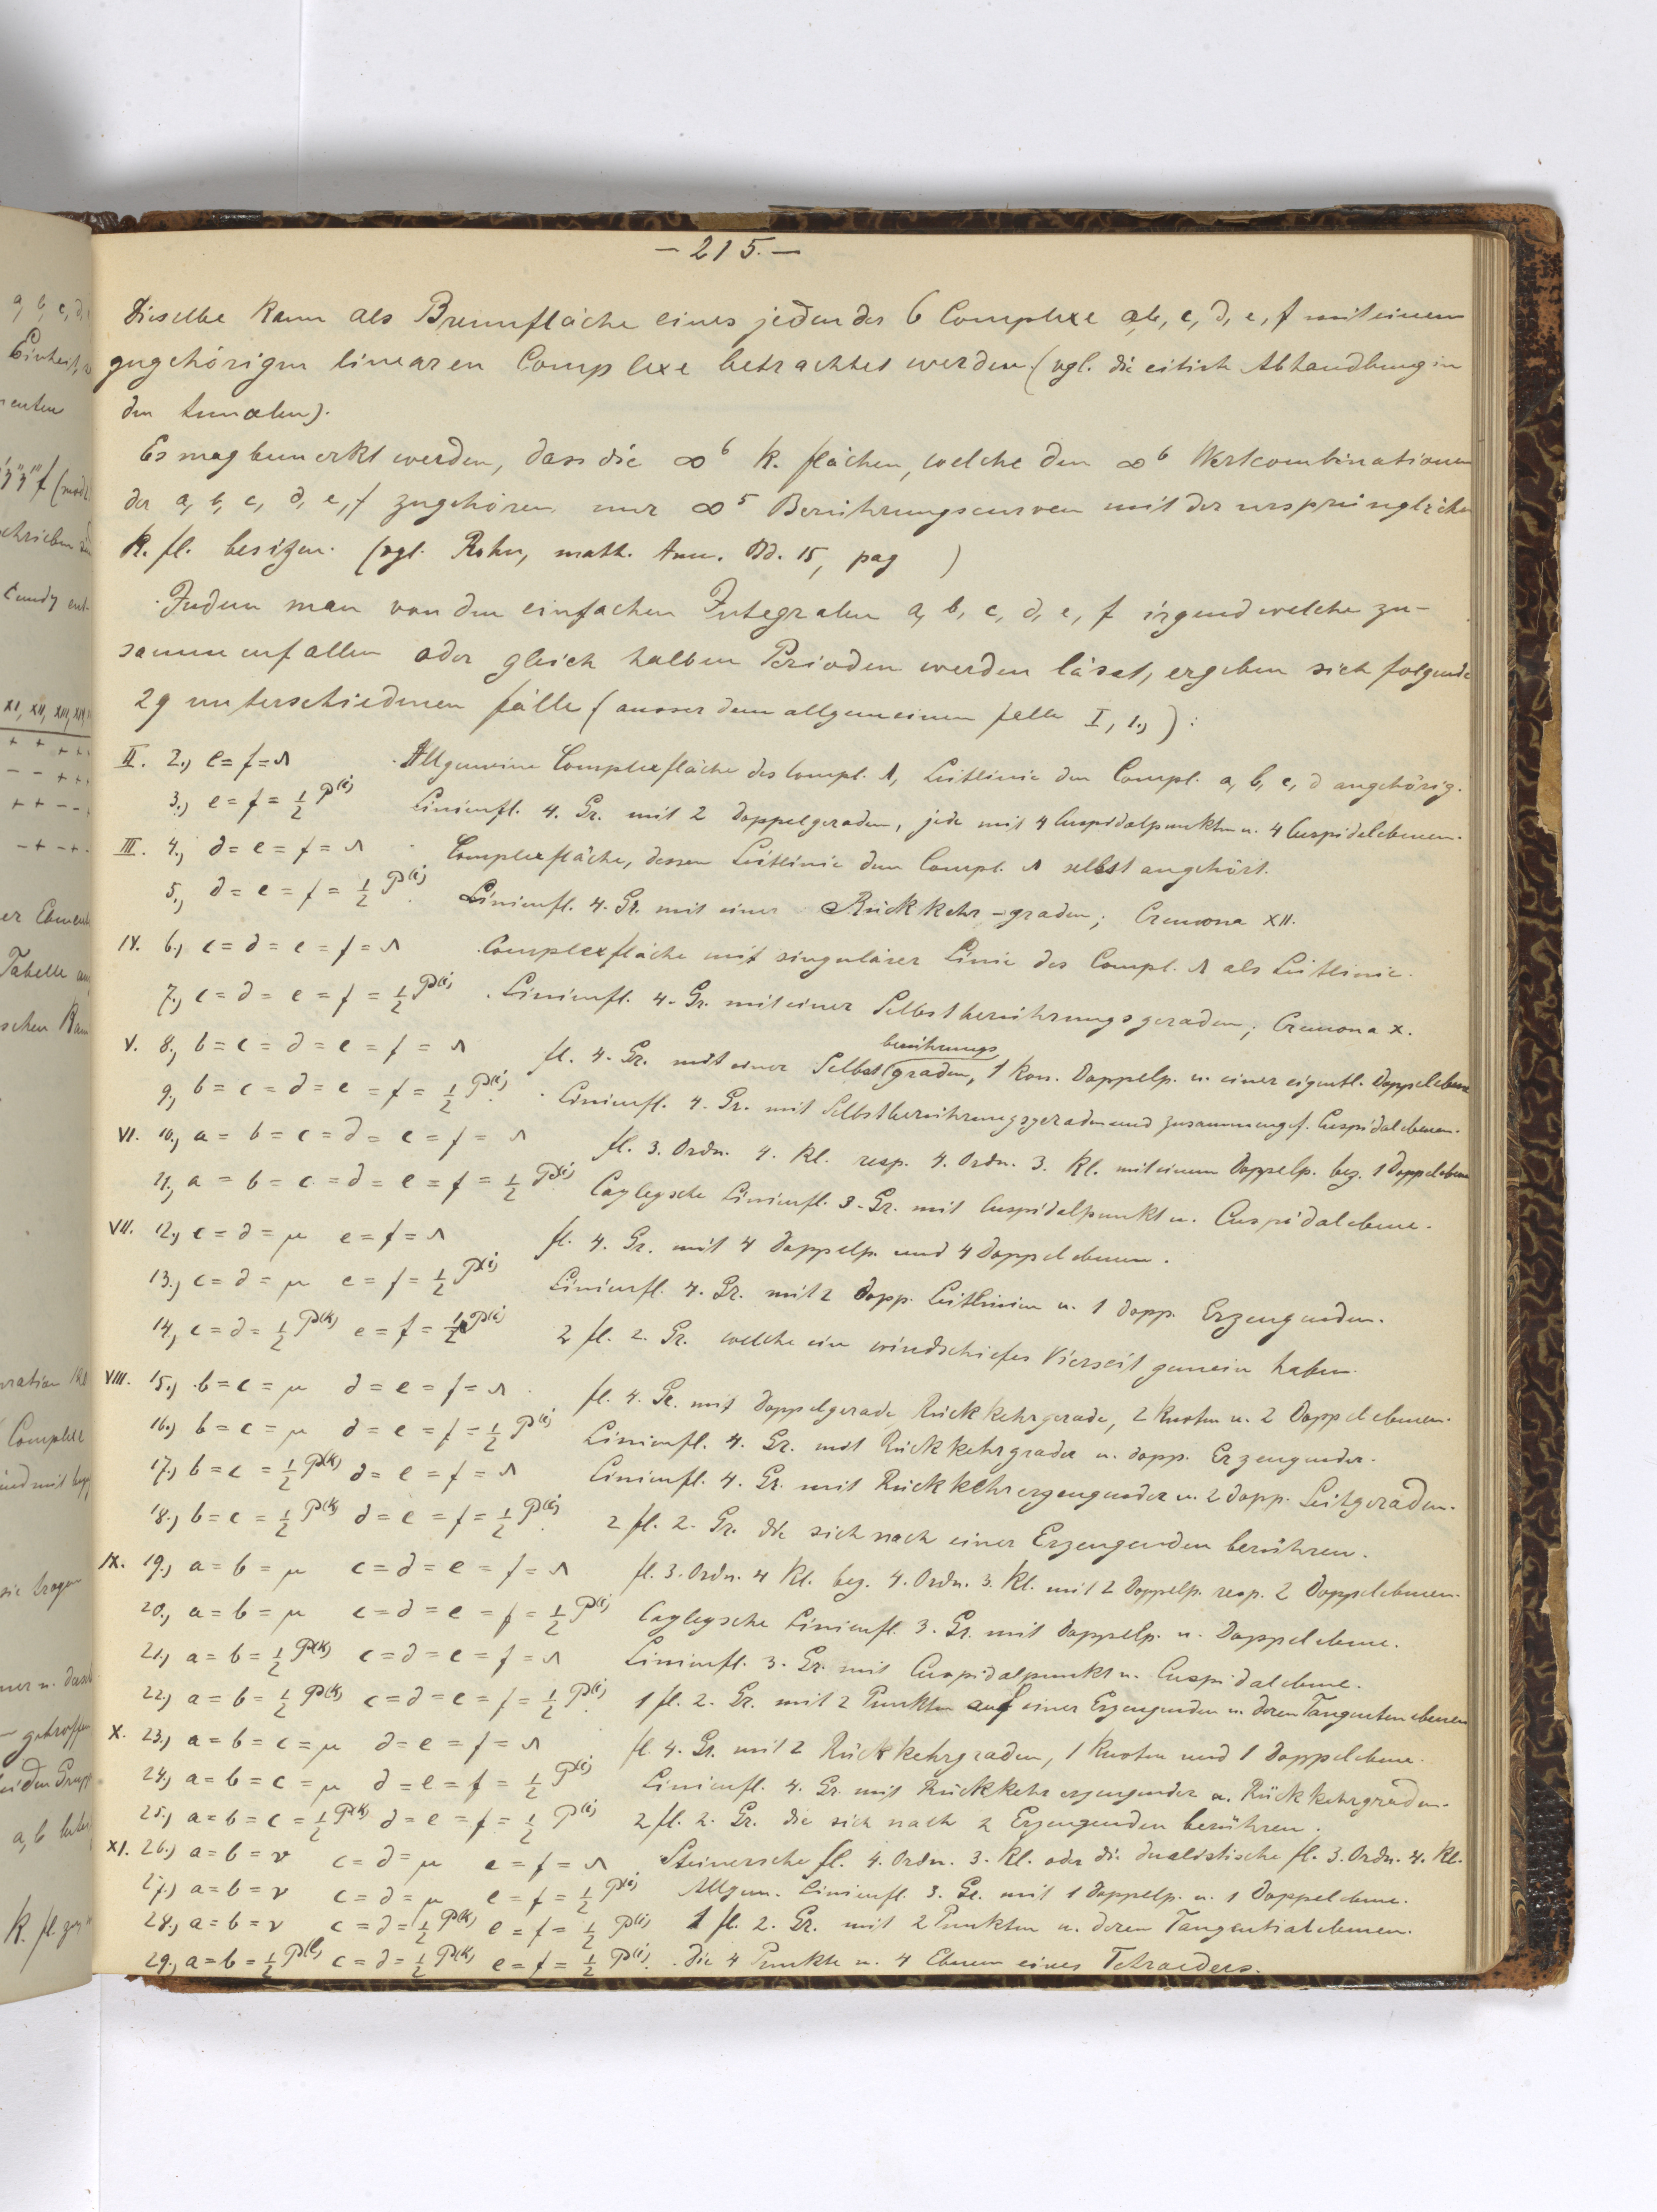 a, b, c, d,
Einheit,
menten
f (mod
schrieben
XI, XII, XIII, XIV
+ + + +
- - + +
+ + - -
- + - + -
er Elemente
Tabelle
schen
Complexe
sie tragen
getroffen
a, b
K. fl.
- 215. -
Dieselbe kann als Brennfläche eines jeden der 6 Complexe a, b, c, d, e, f mit einem
zugehörigen linearen Complexe betrachtet werden. (vgl. die citirte Abhandlung in
den Annalen).
Es mag bemerkt werden, dass die ∞⁶ K. flächen, welche den ∞⁶ Wertcombinationen
der a, b, c, d, e, f zugehören nur ∞⁵ Berührungscurven mit der ursprünglichen
K. fl. besitzen. (vgl. Rohn, math. Ann. Bd. 15, pag )
Indem man von den einfachen Integralen a, b, c, d, e, f irgend welche zu-
sammenfallen oder gleich halben Perioden werden lässt, ergeben sich folgende
29 unterschiedenen fälle (ausser dem allgemeinen falle I, 1.,) :
II. 2., e = f = λ Allgemeine Complexfläche des Compl. λ, Leitlinie den Compl. a, b, c, d angehörig.
3., e = f = ½ P⁽ⁱ⁾ Linienfl. 4. Gr. mit 2 Doppelgeraden, jede mit 4 Cuspidalpunkten u. 4 Cuspidalebenen.
III. 4., d = e = f = λ Complexfläche, deren Leitlinie dem Compl. λ selbst angehört.
5., d = e = f = ½ P⁽ⁱ⁾. Linienfl. 4. Gr. mit einer Rückkehr-graden; Cremona XII.
IV. 6., c = d = e = f = λ Complexfläche mit singulärer Linie des Compl. λ als Leitlinie.
7., c = d = e = f = ½ P⁽ⁱ⁾. Linienfl. 4. Gr. mit einer Selbstberührungsgeraden; Cremona X.
V. 8., b = c = d = e = f = λ fl. 4. Gr. mit einer Selbst(berührungs)graden, 1 kon. Doppelp. u. einer eigentl. Doppelebene
9., b = c = d = e = f = ½ P⁽ⁱ⁾. Linienfl. 4. Gr. mit Selbstberührungsgeraden und zusammengef. Cuspidalebenen.
VI. 10., a = b = c = d = e = f = λ fl. 3. Ordn. 4. Kl. resp. 4. Ordn. 3. Kl. mit einem Doppelp. bez. 1 Doppelebene
11., a = b = c = d = e = f = ½ P⁽ⁱ⁾. Cayleysche Linienfl. 3. Gr. mit Cuspidalpunkt u. Cuspidalebene.
VII. 12., c = d = μ e = f = λ fl. 4. Gr. mit 4 Doppelp. und 4 Doppelebenen.
13., c = d = μ e = f = ½ P⁽ⁱ⁾ Linienfl. 4. Gr. mit 2 Dopp. Leitlinien u. 1 dopp. Erzeugenden.
14., c = d = ½ P⁽ᵏ⁾ e = f = ½ P⁽ⁱ⁾ 2 fl. 2. Gr. welche ein windschiefes Vierseit gemein haben.
VIII. 15., b = c = μ d = e = f = λ fl. 4. Gr. mit Doppelgerade, Rückkehrgerade, 2 Knoten u. 2 Doppelebenen.
16., b = c = μ d = e = f = ½ P⁽ⁱ⁾ Linienfl. 4. Gr. mit Rückkehrgrader u. dopp. Erzeugender.
17., b = c = ½ P⁽ᵏ⁾ d = e = f = λ Linienfl. 4. Gr. mit Rückkehrerzeugender u. 2 dopp. Leitgeraden.
18., b = c = ½ P⁽ᵏ⁾ d = e = f = ½ P⁽ⁱ⁾. 2 fl. 2. Gr. die sich nach einer Erzeugenden berühren.
IX. 19., a = b = μ c = d = e = f = λ fl. 3. Ordn. 4 Kl. bez. 4. Ordn. 3. Kl. mit 2 Doppelp. resp. 2 Doppelebenen.
20., a = b = μ c = d = e = f = ½ P⁽ⁱ⁾ Cayleysche Linienfl. 3. Gr. mit Doppelp. u. Doppelebene.
21., a = b = ½ P⁽ᵏ⁾ c = d = e = f = λ Linienfl. 3. Gr. mit Cuspidalpunkt u. Cuspidalebene.
22., a = b = ½ P⁽ᵏ⁾ c = d = e = f = ½ P⁽ⁱ⁾. 1 fl. 2. Gr. mit 2 Punkten auf einer Erzeugenden u. deren Tangentenebenen
X. 23., a = b = c = μ d = e = f = λ fl. 4. Gr. mit 2 Rückkehrgraden, 1 Knoten und 1 Doppelebene.
24., a = b = c = μ d = e = f = ½ P⁽ⁱ⁾ Linienfl. 4. Gr. mit Rückkehrerzeugender u. Rückkehrgraden.
25., a = b = c = ½ P⁽ᵏ⁾ d = e = f = ½ P⁽ⁱ⁾ 2 fl. 2. Gr. die sich nach 2 Erzeugenden berühren.
XI. 26., a = b = ν c = d = μ e = f = λ. Steinersche fl. 4. Ordn. 3. Kl. oder die dualistische fl. 3. Ordn. 4. Kl.
27., a = b = ν c = d = μ e = f = ½ P⁽ⁱ⁾ Allgem. Linienfl. 3. Gr. mit 1 Doppelp. u. 1 Doppelebene.
28., a = b = ν c = d = ½ P⁽ᵏ⁾ e = f = ½ P⁽ⁱ⁾ 1 fl. 2. Gr. mit 2 Punkten u. deren Tangentialebenen.
29., a = b = ½ P⁽ˡ⁾ c = d = ½ P⁽ᵏ⁾ e = f = ½ P⁽ⁱ⁾. Die 4 Punkte u. 4 Ebenen eines Tetraeders.